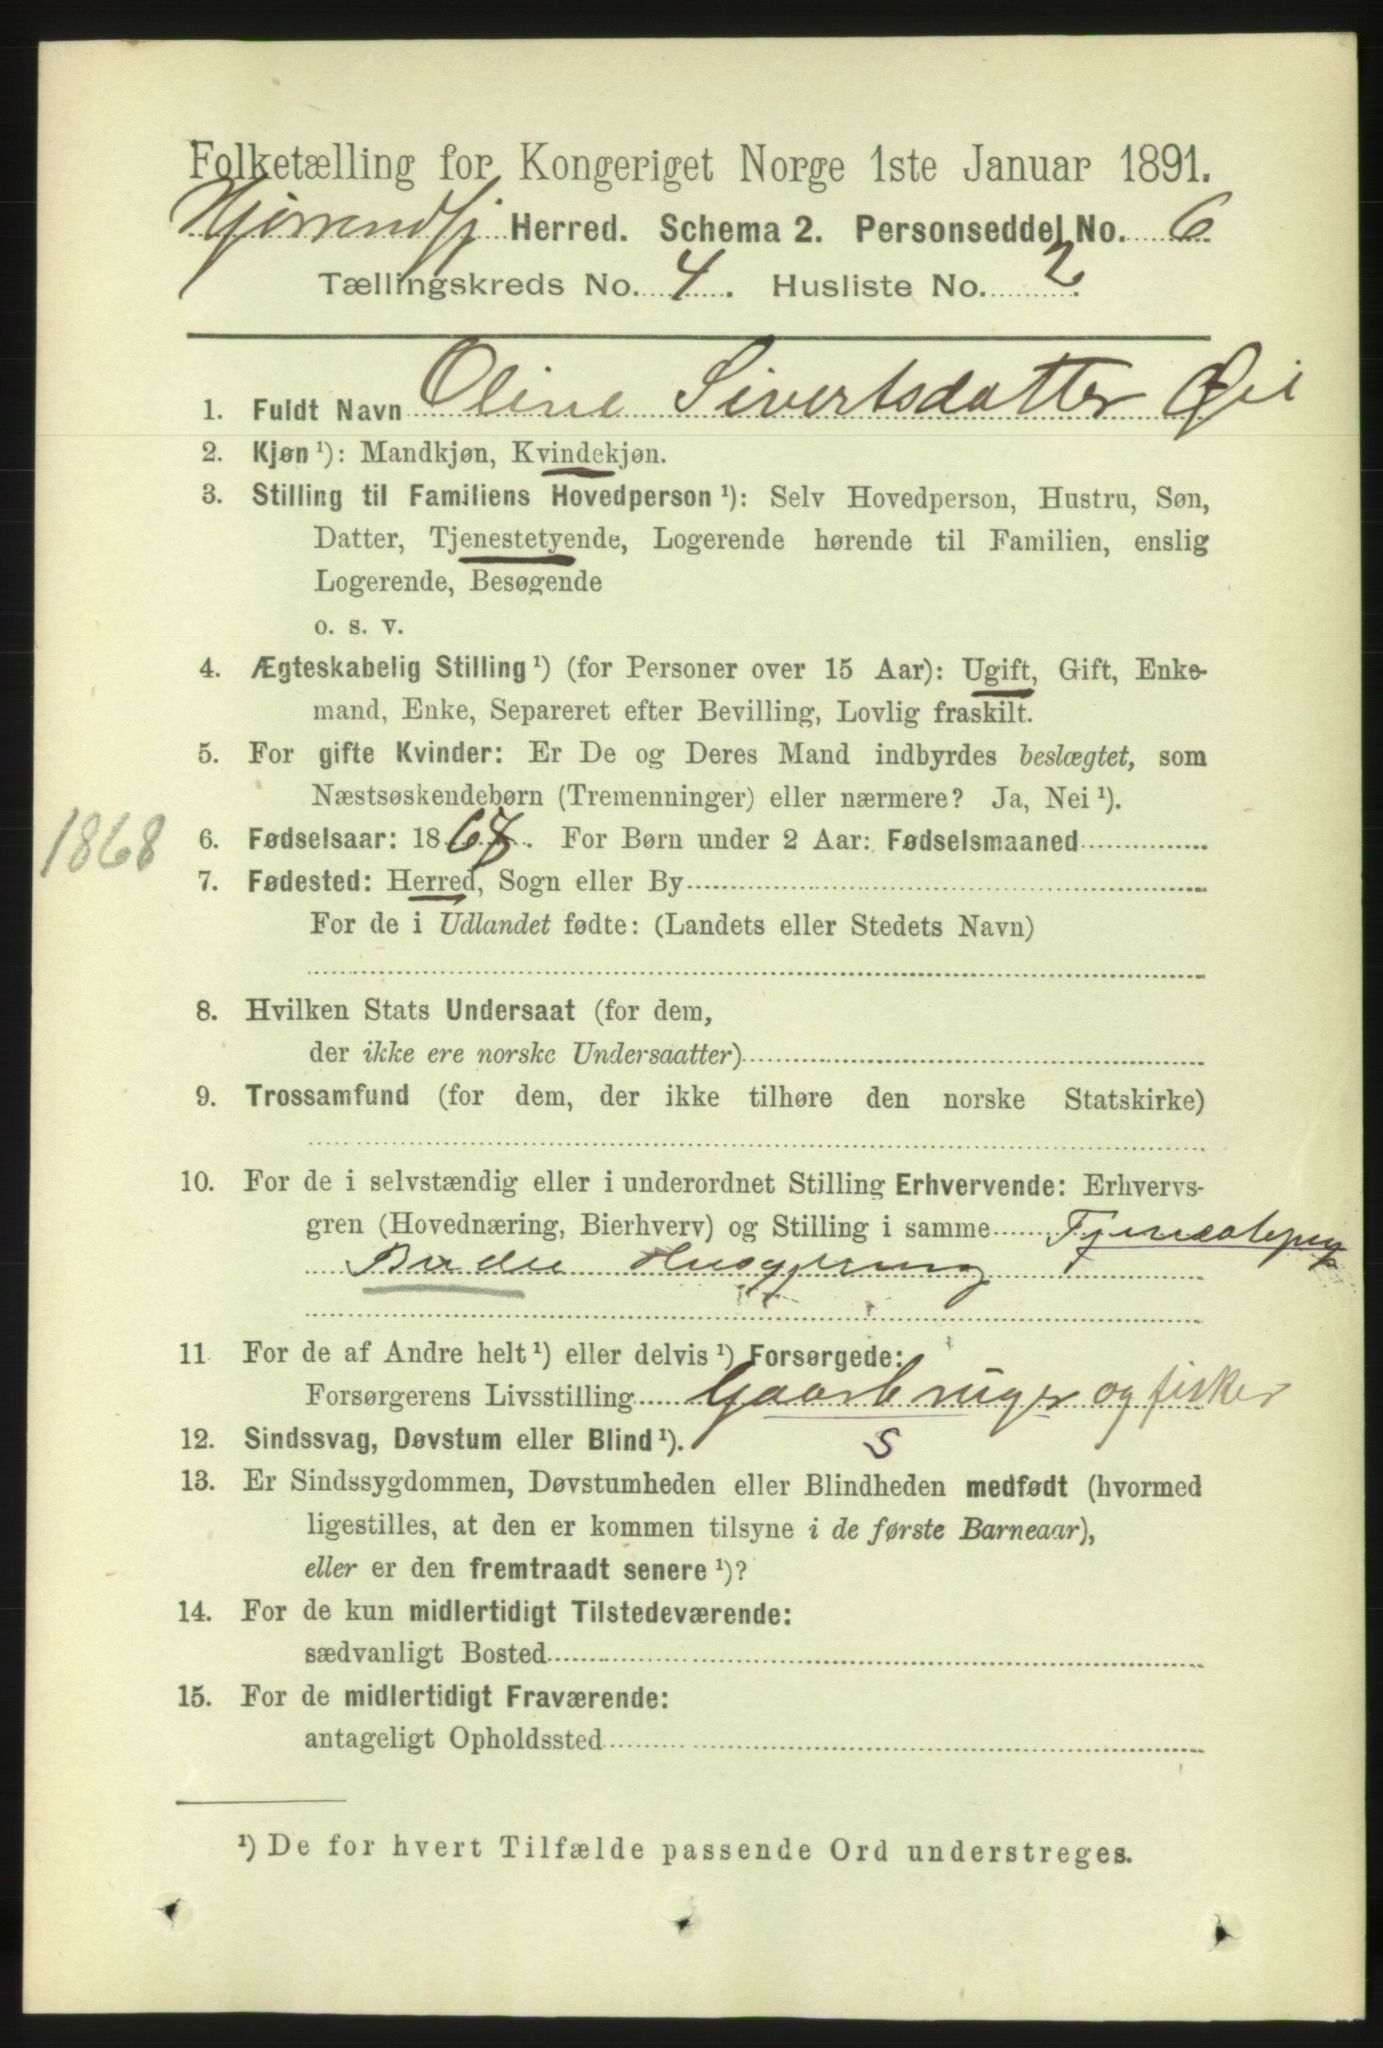 Folketælling for Kongeriget Norge 1ste Januar 1891.
Hjørrendfj Herred. Schema 2. Personseddel No. 6
Tællingskreds No. 4. Husliste No. 2.
1. Fuldt Navn Oline Sivertsdatter Øie
2. Kjøn ¹): Mandkjøn, Kvindekjøn.
3. Stilling til Familiens Hovedperson ¹): Selv Hovedperson, Hustru, Søn,
Datter, Tjenestetyende, Logerende hørende til Familien, enslig
Logerende, Besøgende
o. s. v.
4. Ægteskabelig Stilling ¹) (for Personer over 15 Aar): Ugift, Gift, Enke-
mand, Enke, Separeret efter Bevilling, Lovlig fraskilt.
5. For gifte Kvinder: Er De og Deres Mand indbyrdes beslægtet, som
Næstsøskendebørn (Tremenninger) eller nærmere? Ja, Nei ¹).
1868
6. Fødselsaar: 1868. For Børn under 2 Aar: Fødselsmaaned
7. Fødested: Herred, Sogn eller By
For de i Udlandet fødte: (Landets eller Stedets Navn)
8. Hvilken Stats Undersaat (for dem,
der ikke ere norske Undersaatter)
9. Trossamfund (for dem, der ikke tilhøre den norske Statskirke)
10. For de i selvstændig eller i underordnet Stilling Erhvervende: Erhvervs-
gren (Hovednæring, Bierhverv) og Stilling i samme Tjenestepig
Husgjerning
11 For de af Andre helt ¹) eller delvis ¹) Forsørgede:
Forsørgerens Livsstilling Gaarbruger og fisker
12. Sindssvag, Døvstum eller Blind ¹). S
13. Er Sindssygdommen, Døvstumheden eller Blindheden medfødt (hvormed
ligestilles, at den er kommen tilsyne i de første Barneaar),
eller er den fremtraadt senere ¹)?
14. For de kun midlertidigt Tilstedeværende:
sædvanligt Bosted
15. For de midlertidigt Fraværende:
antageligt Opholdssted
¹) De for hvert Tilfælde passende Ord understreges.